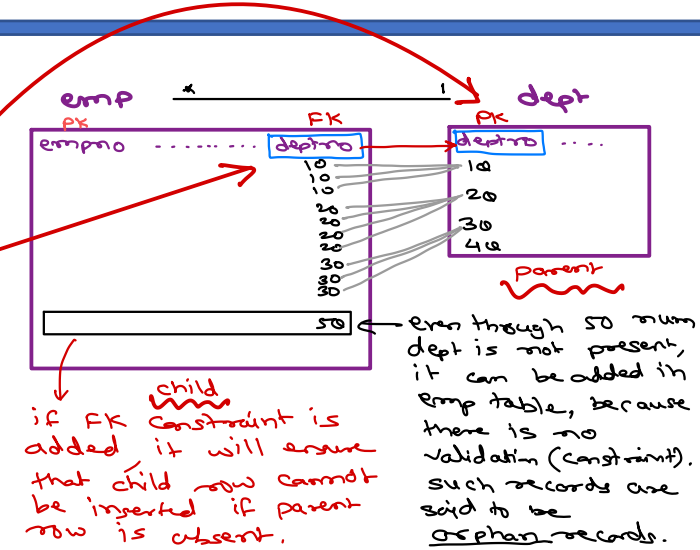 emp * 1 dept
PK FK PK
empno ......... deptno deptno ....
10 10
10
10
20 20
20
20 30
20 40
30
30
30
parent
50
even through 50 num
dept is not present,
it can be added in
emp table, because
there is no
validation (constraint).
such records are
said to be
orphan records.
child
if FK constraint is
added it will ensure
that child row cannot
be inserted if parent
row is absent.